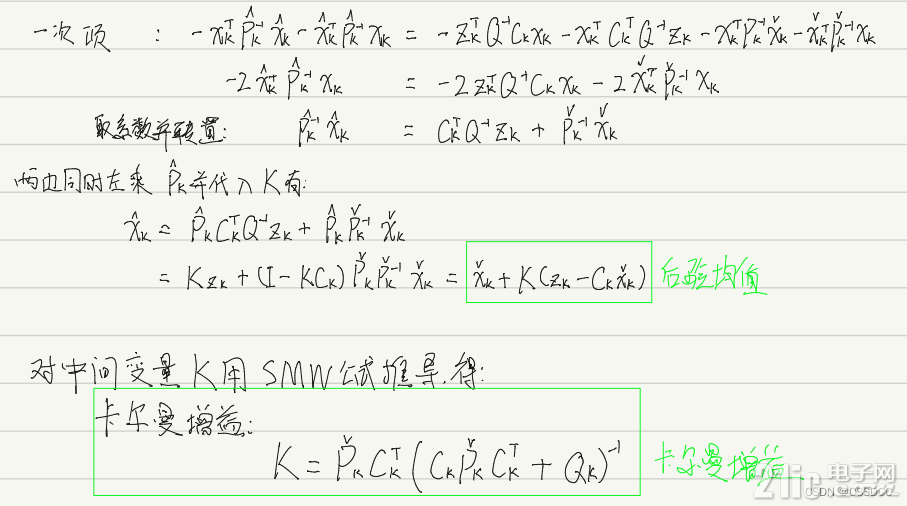 一次项 : -x_K^T P̂_K^{-1} x̂_K - x̂_K^T P̂_K^{-1} x_K = -z_K^T Q^{-1} C_K x_K - x_K^T C_K^T Q^{-1} z_K - x_K^T P̌_K^{-1} x̌_K - x̌_K^T P̌_K^{-1} x_K
-2 x̂_K^T P̂_K^{-1} x_K = -2 z_K^T Q^{-1} C_K x_K - 2 x̌_K^T P̌_K^{-1} x_K
取系数并转置: P̂_K^{-1} x̂_K = C_K^T Q^{-1} z_K + P̌_K^{-1} x̌_K
两边同时左乘 P̂_K 并代入 K 有:
x̂_K = P̂_K C_K^T Q^{-1} z_K + P̂_K P̌_K^{-1} x̌_K
= K z_K + (I - K C_K) P̌_K P̌_K^{-1} x̌_K = x̌_K + K(z_K - C_K x̌_K) 后验均值
对中间变量 K 用 SMW 公式推导,得:
卡尔曼增益:
K = P̌_K C_K^T (C_K P̌_K C_K^T + Q_K)^{-1} 卡尔曼增益
21ic 电子网